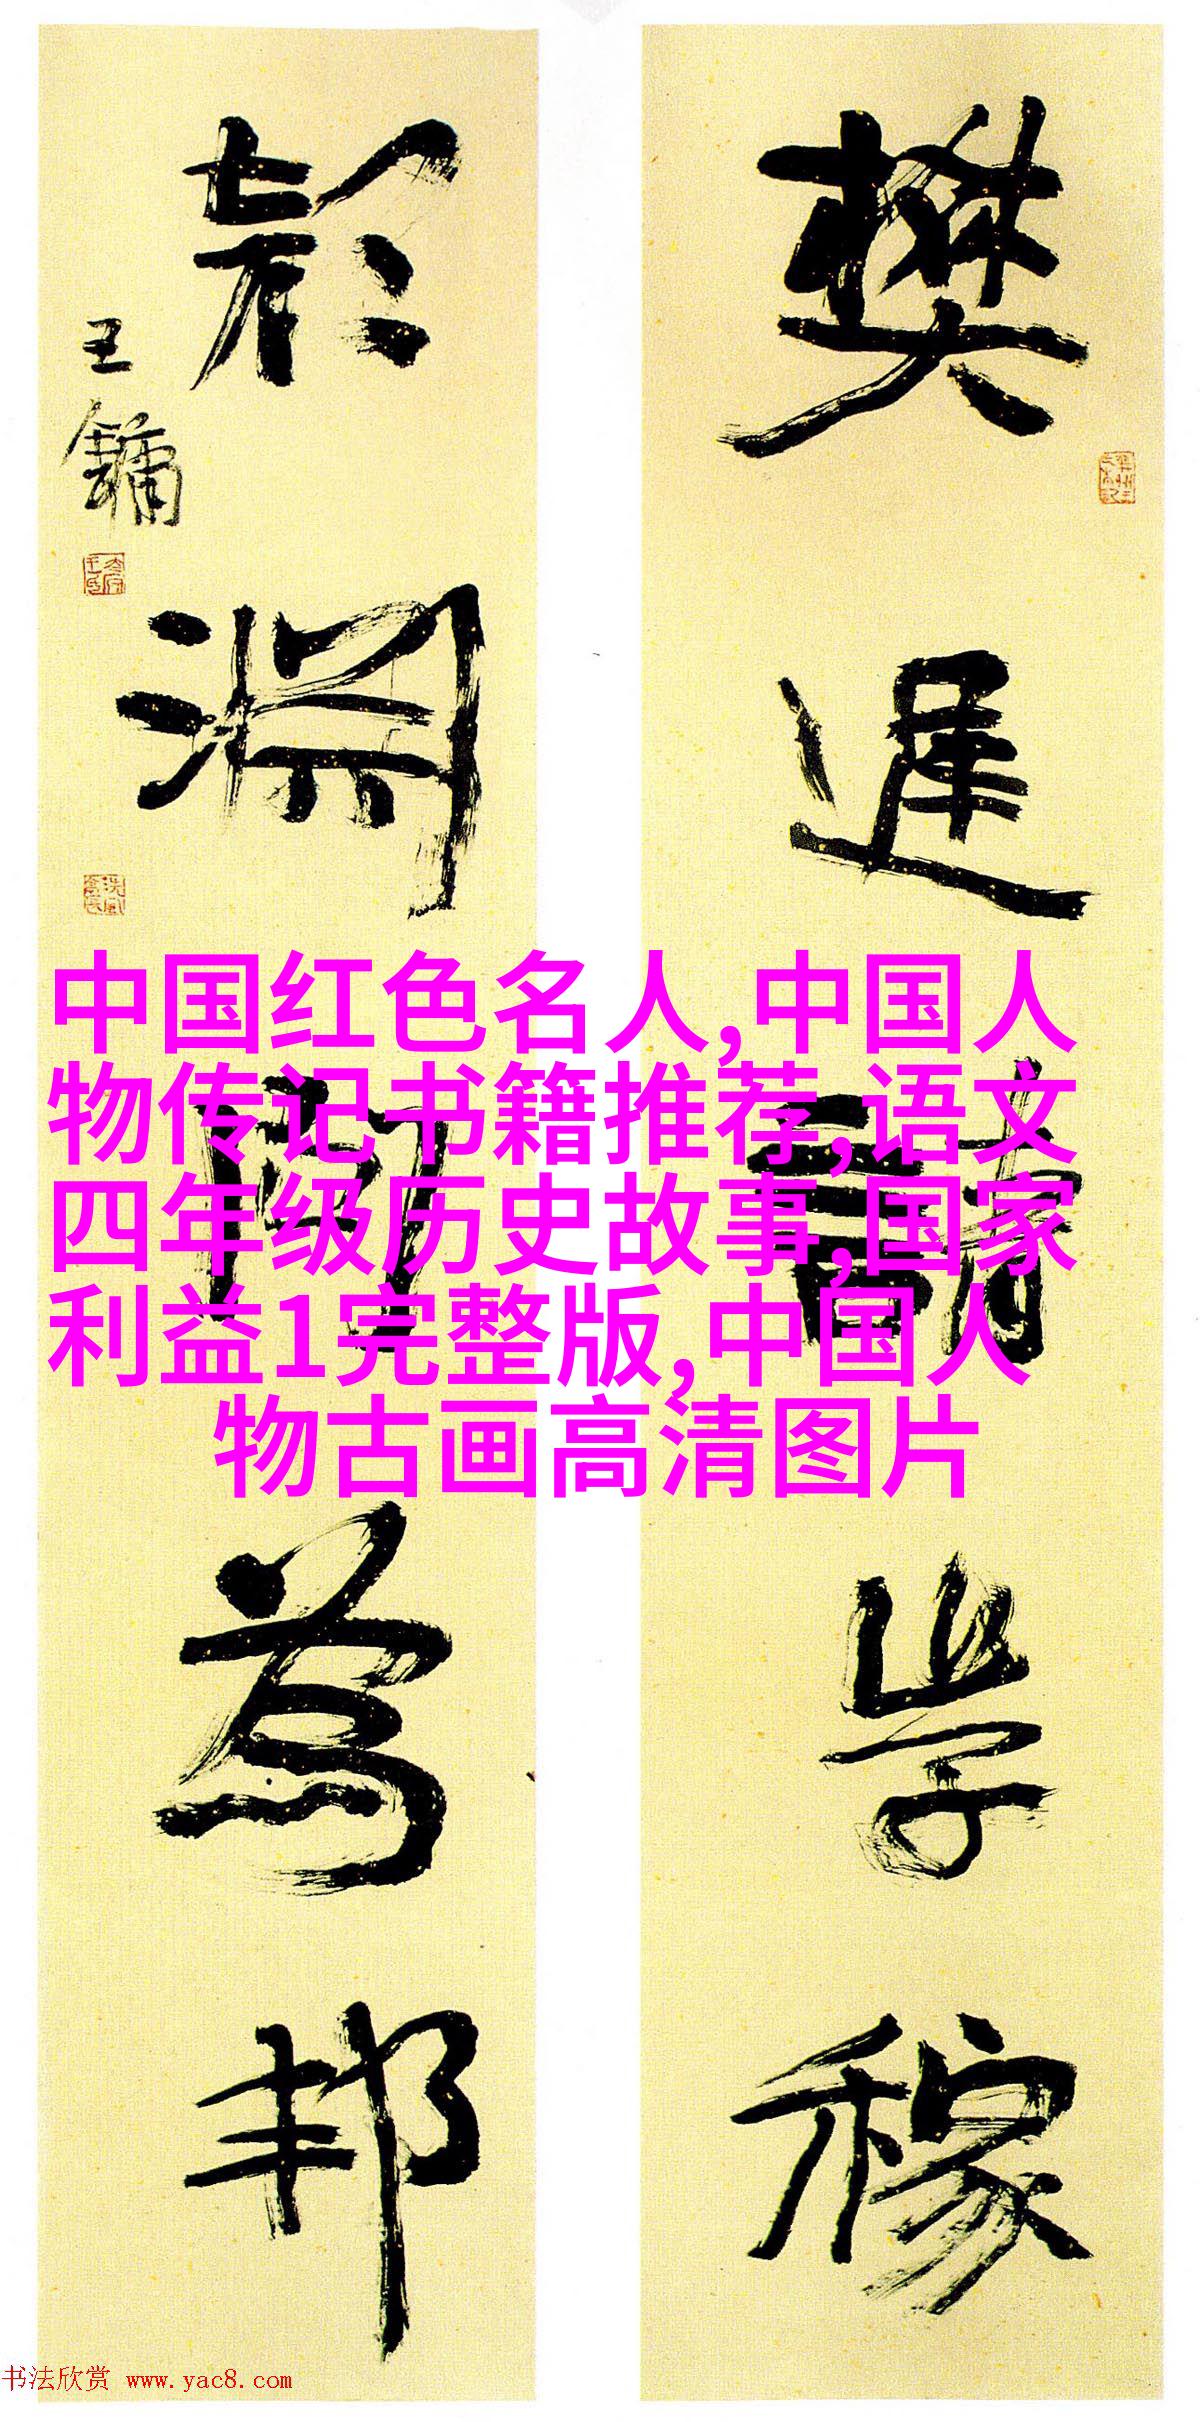 樊遲請學稼
顔淵問為邦
王鏞
中国红色名人,中国人
物传记书籍推荐,语文
四年级历史故事,国家
利益1完整版,中国人
物古画高清图片
书法欣赏 www.yac8.com